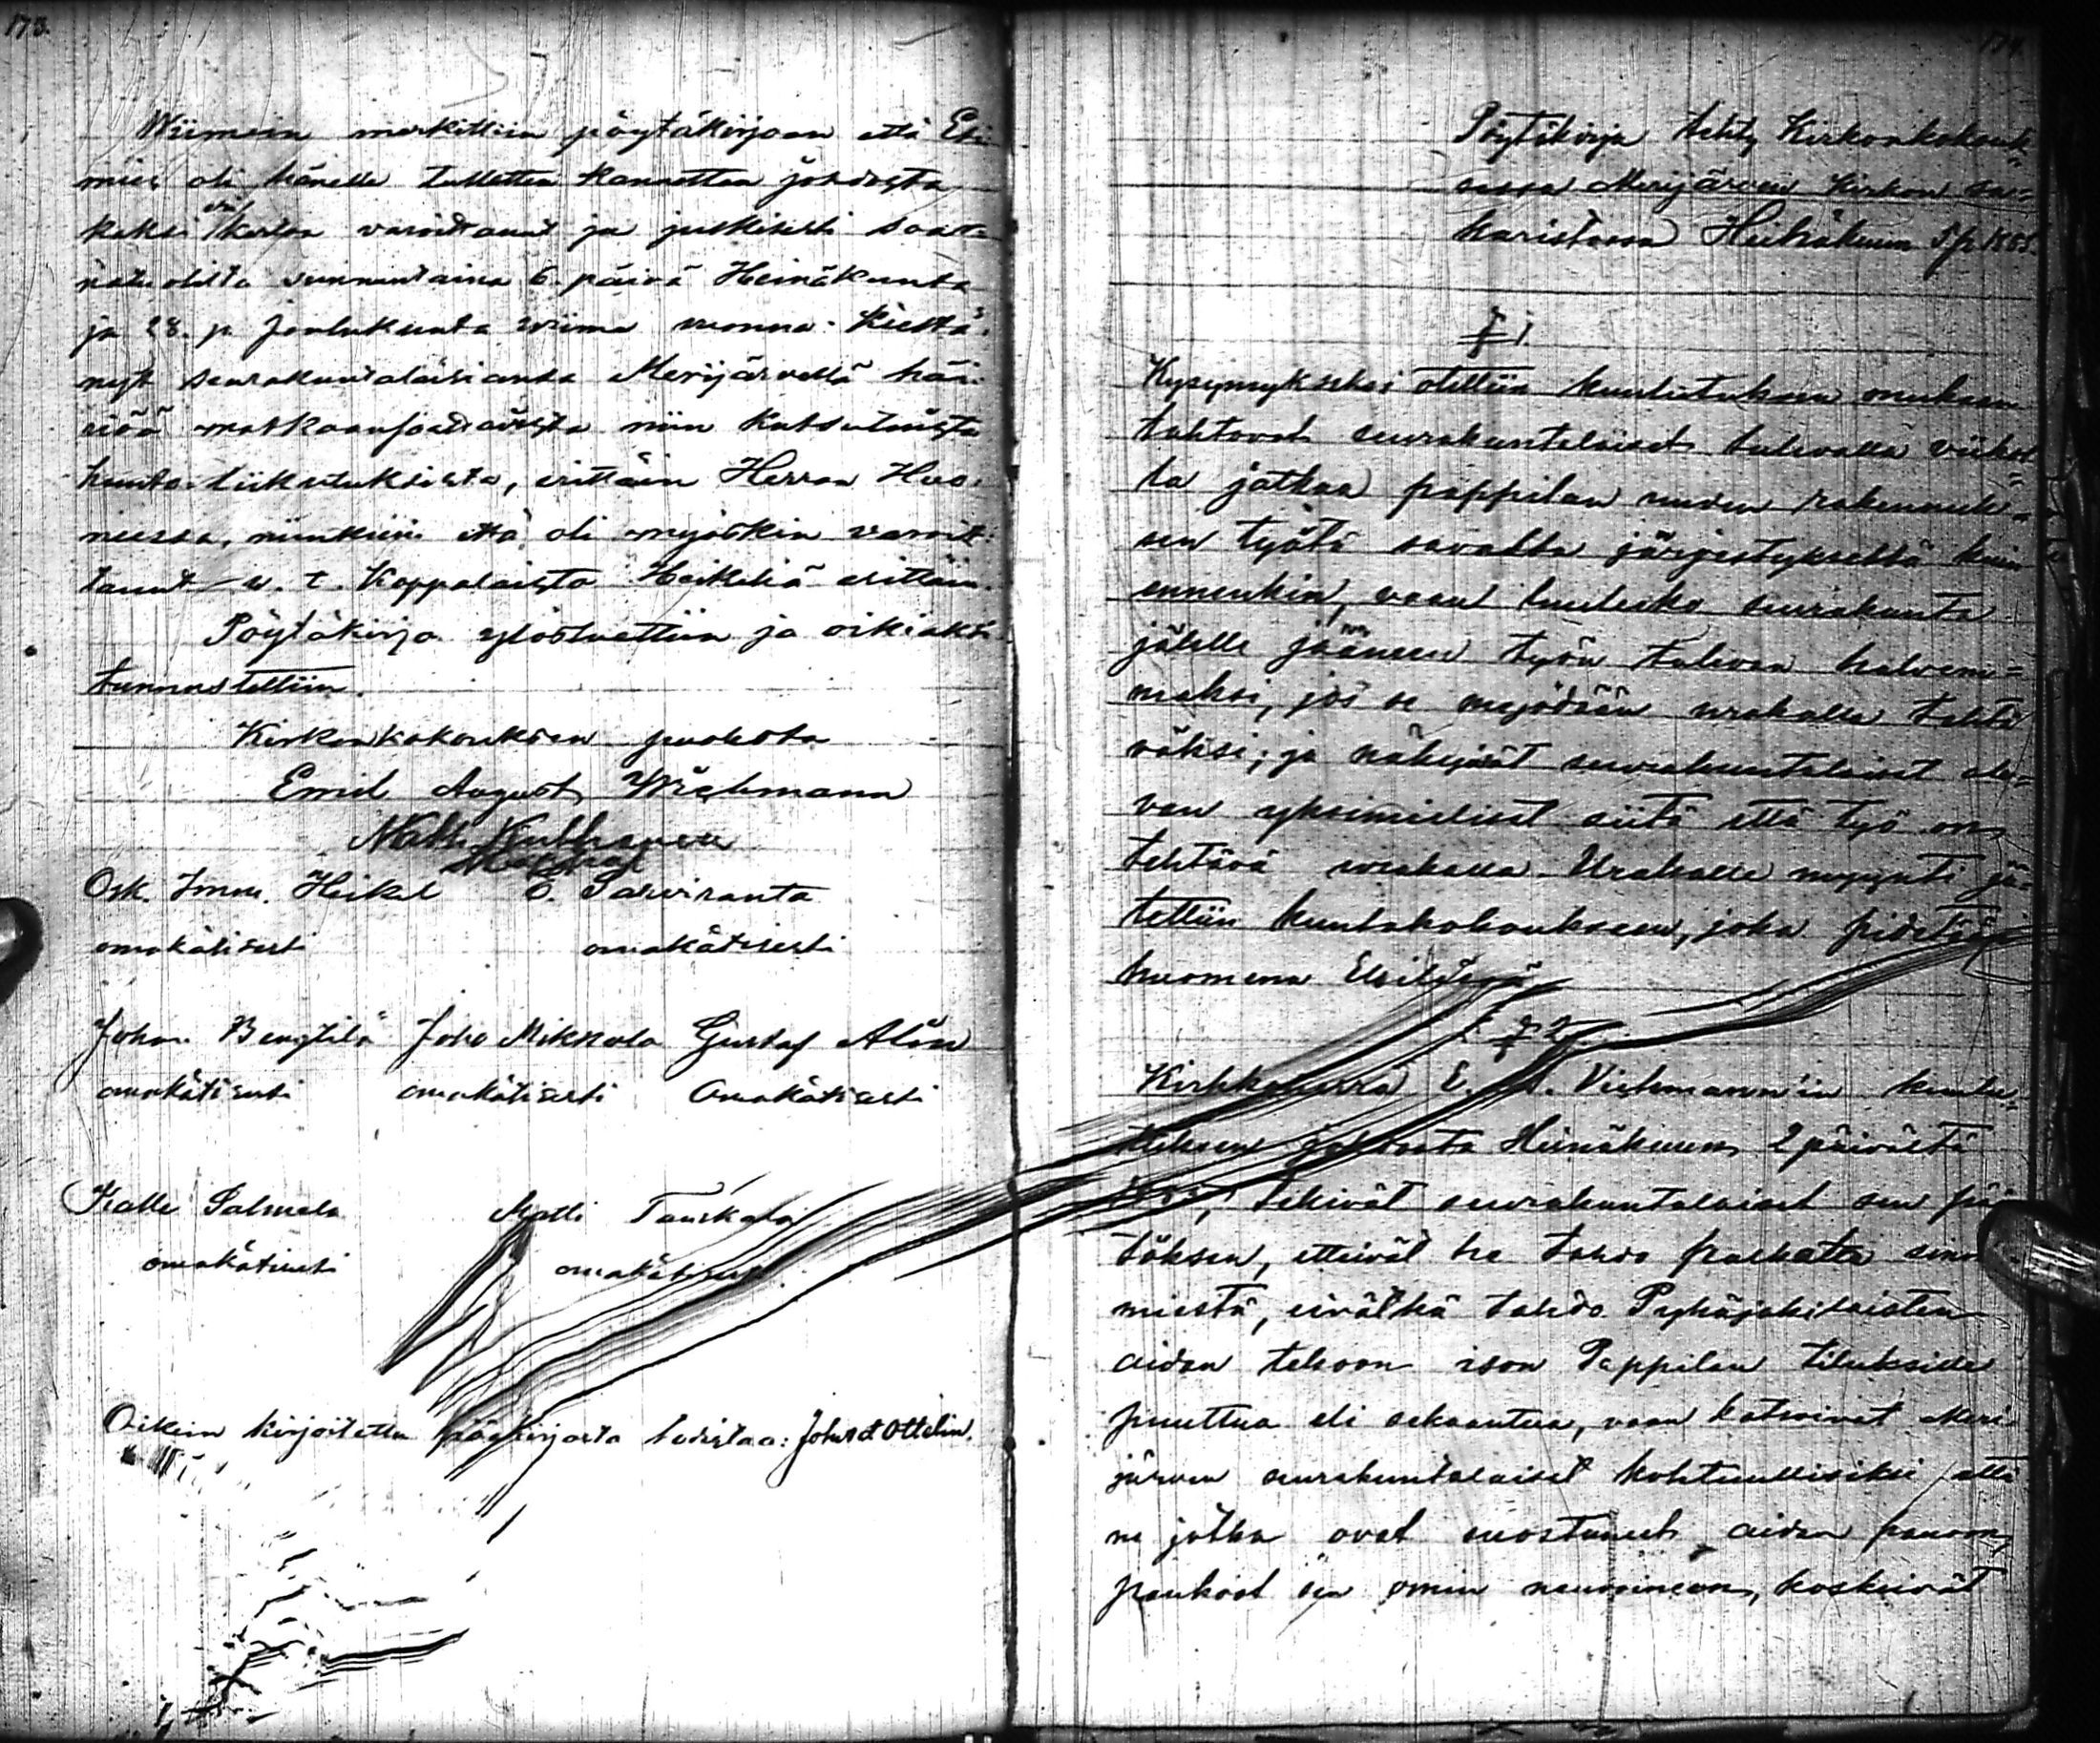 173.
Wiimein merkittiin pöytäkirjaan että Esi-
mies oli hänelle tulletten kannetten johdosta
kaksi eri kertaa varoittanut ja julkisesti saar-
natuolilta sunnuntaina 6. päivä Heinäkuuta
ja 28. p. Joulukuuta viime vuonna kieltä-
nyt seurakuntalaisiansa Merijärvellä häi-
riöö matkaansaattavista niin kutsutuista
lautaliikutuksista, erittäin Herran Huo-
neessa, niinkuin että oli myöskin varoit-
tanut v. t. Kappalaista Heikeliä erittäin.
Pöytäkirja ylösluettiin ja oikiaksi
tunnustettiin.
Kirkonkokouksen puolesta
Emil August Wichmann
Matti
Osk. Imm. Heikel O. Saviranta
omakätisesti omakätisesti
Johan Bengtilä Joho Mikkola Gustaf Alén
omakätisesti omakätisesti Omakätisesti
Kalle Salmela Matti Tauskala
omakätisesti omakätisesti
Oikein kirjoitettu pääkirjasta todistaa: Johns Ottelin.
174
Pöytäkirja tehty Kirkonkokouk-
sessa Merijärven Kirkon sa-
karistossa Heinäkuun 5 p. 1885.
§ 1.
Kysymykseksi otettiin kuulutuksen mukaan
tahtovat seurakuntalaiset tulevalla viikol-
la jatkaa pappilan uuden rakennuk-
sen työtä samalla järjestyksellä kuin
ennenkin, vaan luuleeko seurakunta
jälelle jääneen työn tulevan halvem-
maksi, jos se myödään urakalla tehtä-
väksi; ja näkyivät seurakuntalaiset ole-
van yksimieliset siitä että työ on
tehtävä urakalla. Urakalle myynti jä-
tettiin kuntakokoukseen, joka pidetään
huomena Eteläperä
§ 2.
Kirkkoherra E. A. Wichmann'in kuulu-
tuksen johdosta Heinäkuun 2 päivältä
1885, tekivät seurakuntalaiset sen pää
töksen, etteivät he tahdo palkata
miestä, eivätkä tahdo Pyhäjokilaisten
aidan tekoon ison Pappilan tiluksille
puuttua eli sekaantua, vaan katsoivat Meri-
järven seurakuntalaiset kohtuulliseksi että
ne jotka ovat suostuneet aidan panoon,
pankoot sen omin neuvoineen, koskeivät